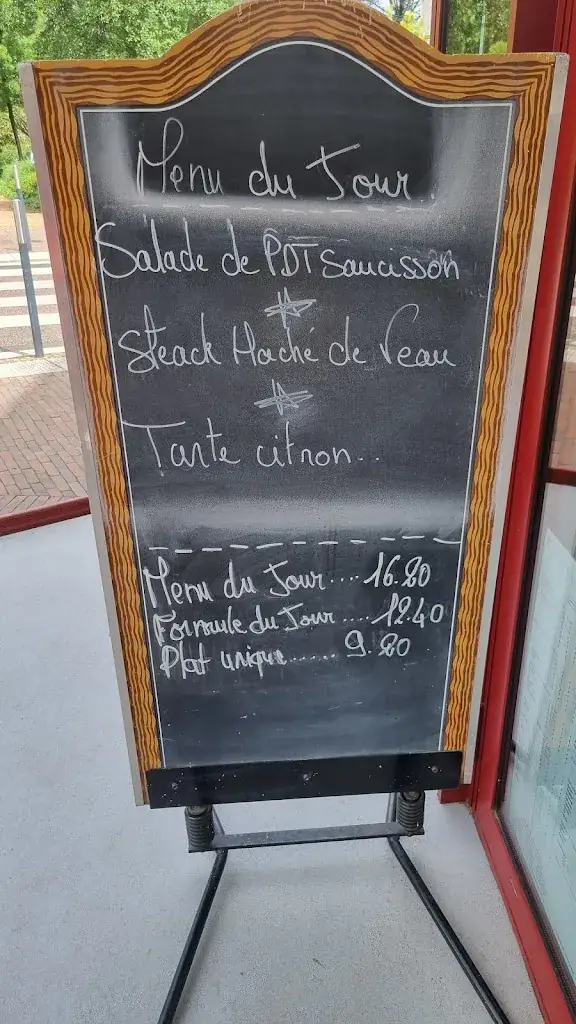 Menu du Jour.
Salade de PDT saucisson
Steack Haché de Veau
Tarte citron..
Menu du Jour.... 16.20
Formule du Jour..... 12.40
Plat unique....... 9.20